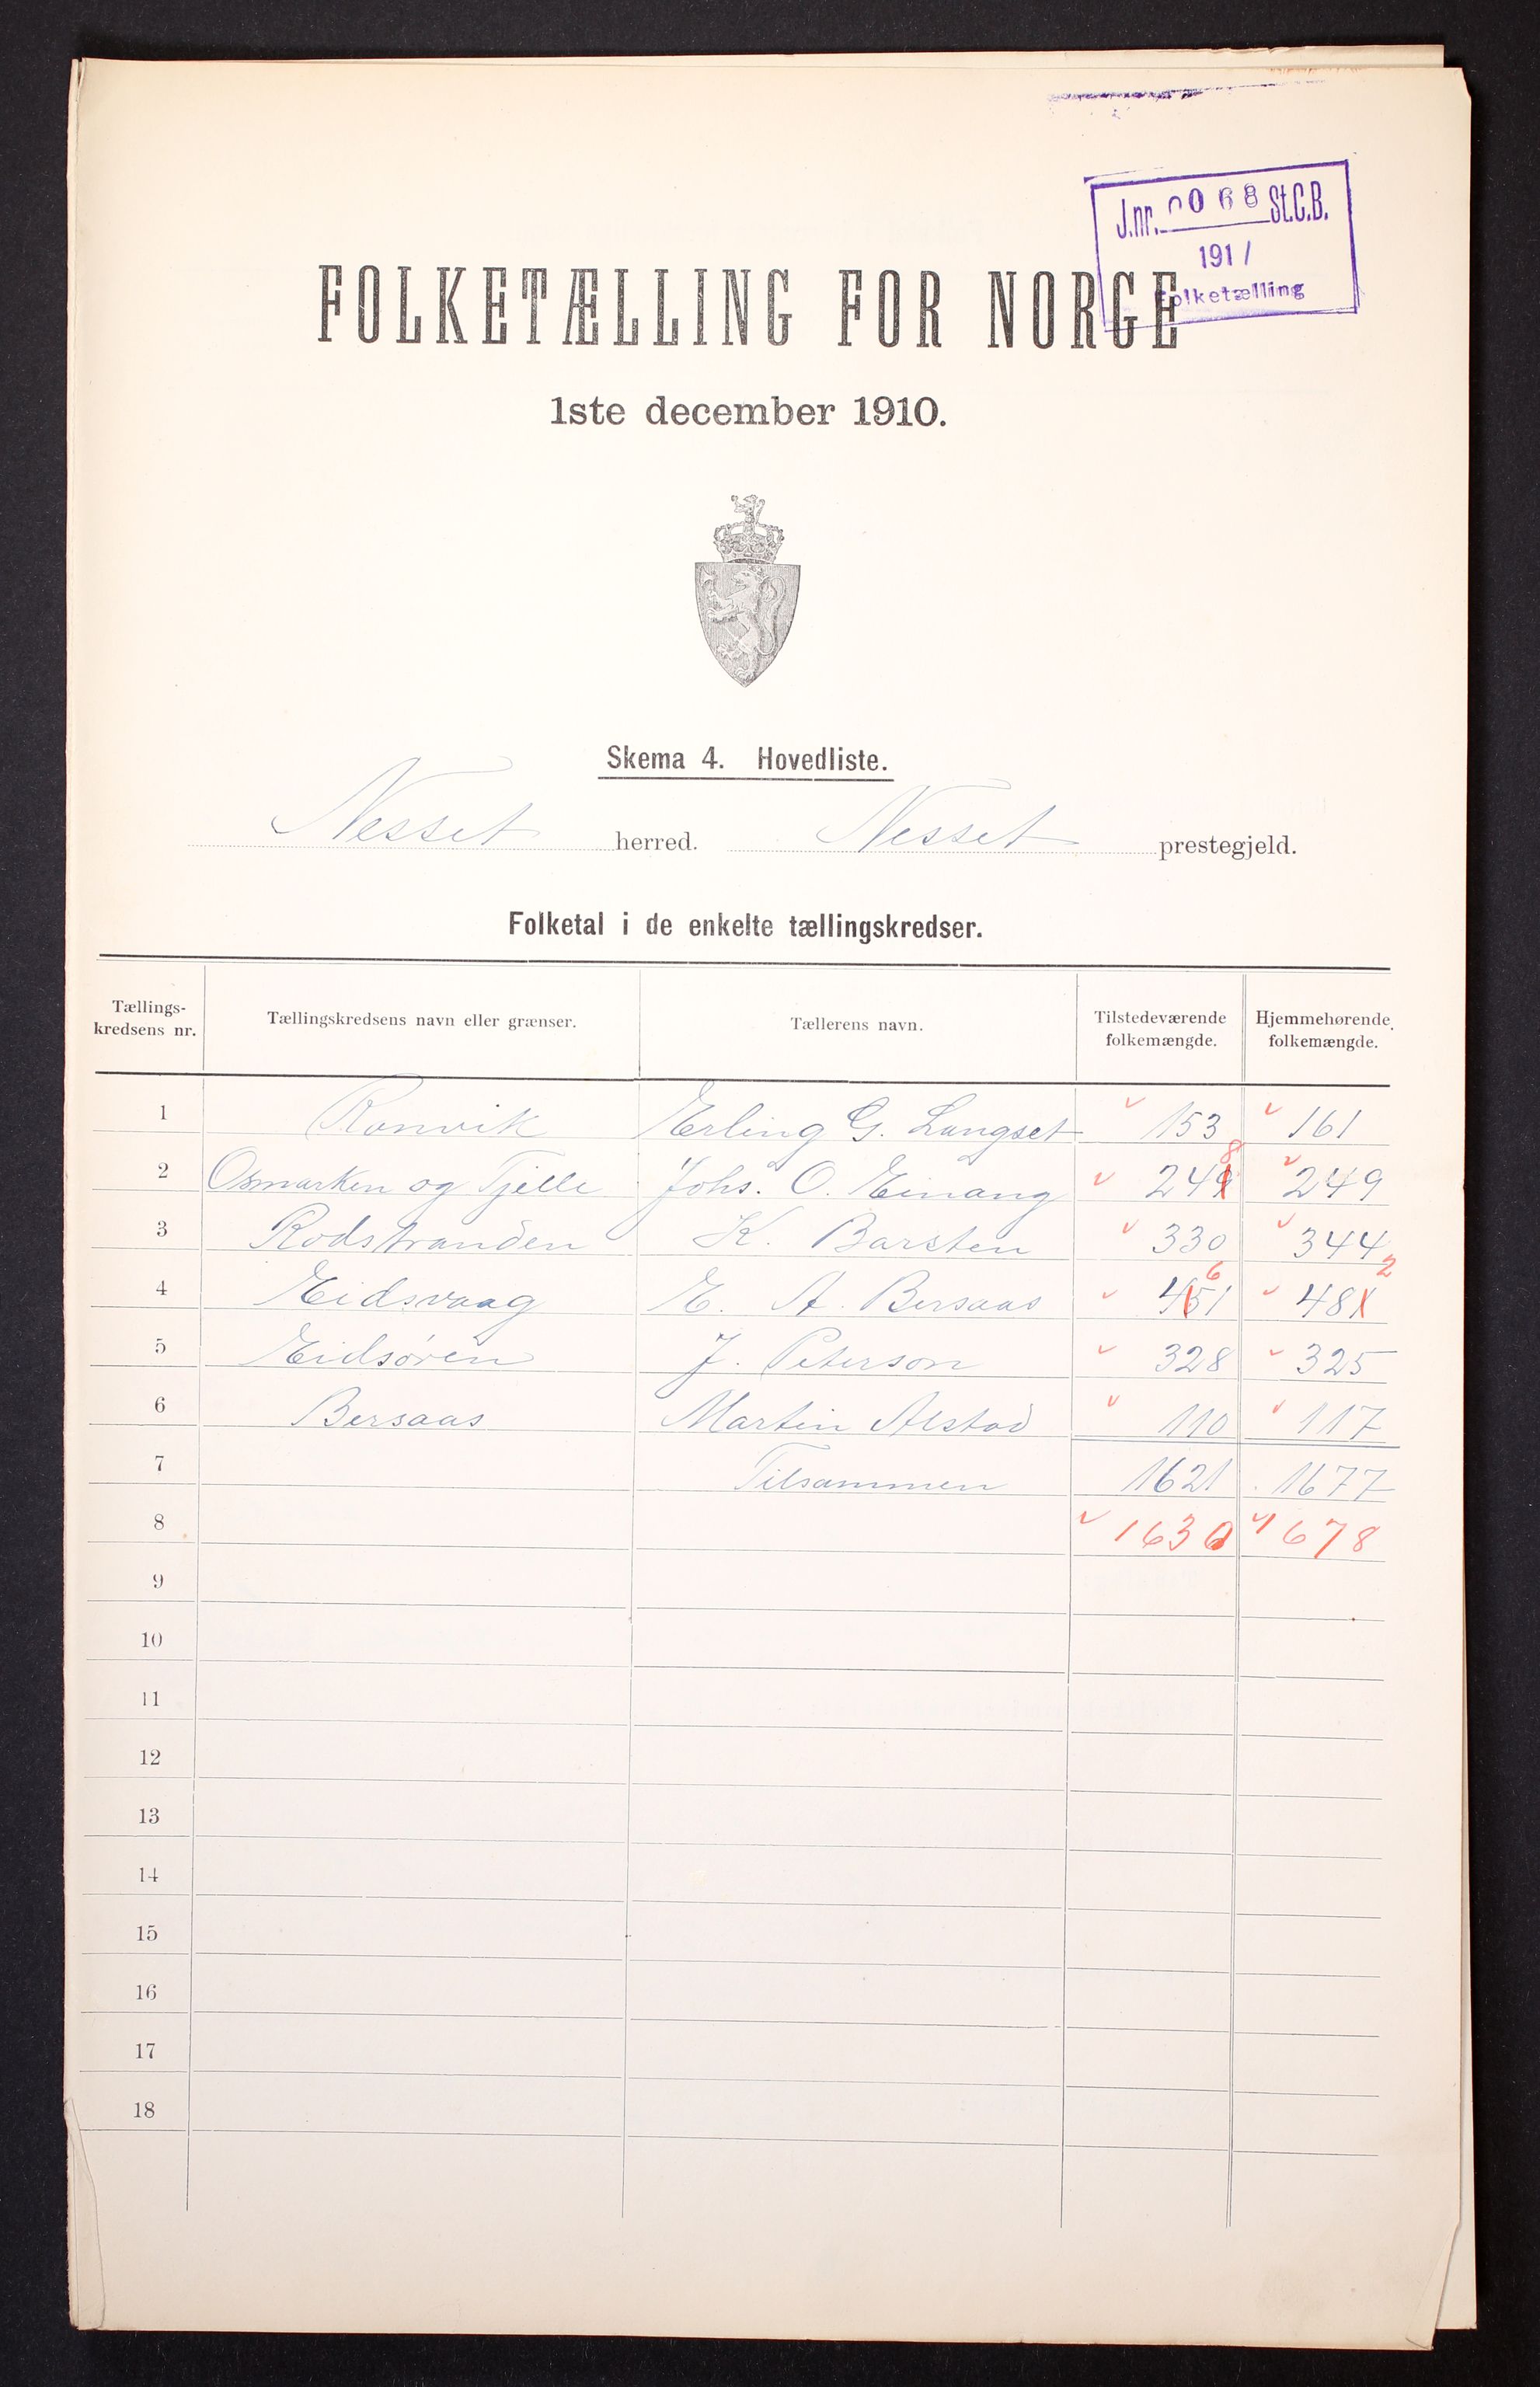 J.nr. 0068 St.C.B.
1911
Folketælling
FOLKETÆLLING FOR NORGE
1ste december 1910.
Skema 4. Hovedliste.
Nesset herred. Nesset prestegjeld.
Folketal i de enkelte tællingskredser.
Tællings-kredsens nr. Tællingskredsens navn eller grænser. Tællerens navn. Tilstedeværende folkemængde. Hjemmehørende folkemængde.
1 Ranvik Erling G. Langset 153 161
2 Osmarken og Tjelle Johs. O. Einang 249 8 249
3 Rødstranden K. Barsten 330 344
4 Eidsvaag E. A. Bersaas 451 6 481 2
5 Eidsøren J. Peterson 328 325
6 Bersaas Martin Alstad 110 117
7 Tilsammen 1621 1677
8 1630 1678
9
10
11
12
13
14
15
16
17
18